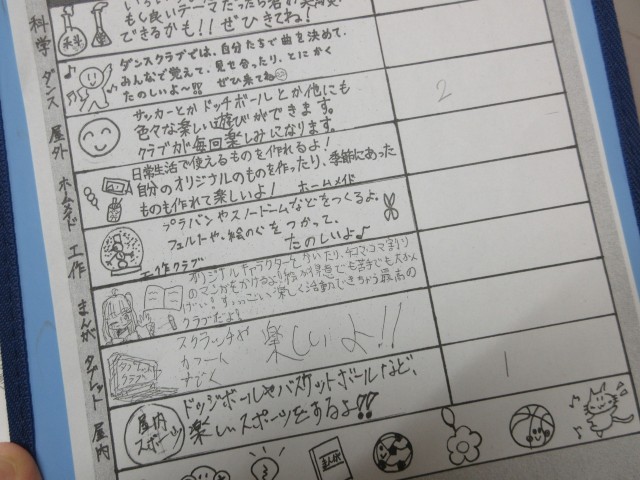 科学
もし良いテーマだったら
できるかも!!ぜひきてね!
科学
ダンス
ダンスクラブでは、自分たちで曲を決めて、
みんなで覚えて、見せ合ったり、とにかく
たのしいよ〜!! ぜひ来てね
屋外
サッカーとかドッチボールとか他にも
色々な楽しい遊びができます。
クラブが毎回楽しみになります。
2
ホームメイド
日常生活で使えるものを作れるよ!
自分のオリジナルのものを作ったり、季節にあった
ものも作れて楽しいよ! ホームメイド
工作
プラバンやスノードームなどをつくるよ。
フェルトや、絵のぐをつかって、
たのしいよ♪
工作クラブ
まんが
オリジナルキャラクターをかいたり、4コマ
のマンガをかけるよ!絵が得意でも苦手でも大かん
げい!すっごい楽しく活動できちゃう最高の
クラブだよ!
タブレット
タブレット
クラブ
スクラッチや
カフート
楽しいよ!!
屋内
屋内
スポーツ
ドッジボールやバスケットボールなど、
楽しいスポーツをするよ!!
1
まんが